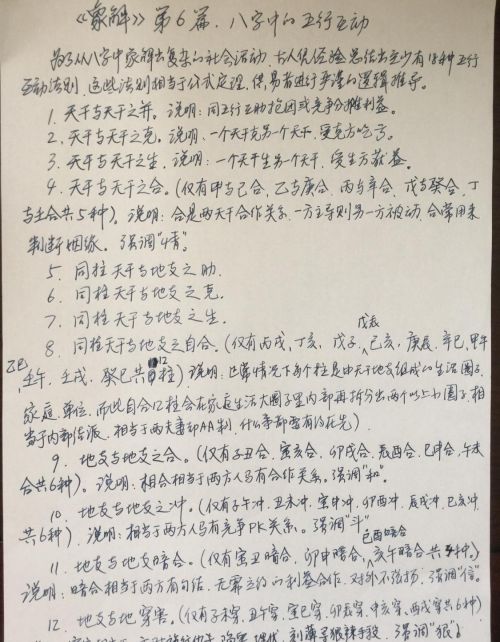 《象解》第6篇.八字中的五行互动
为了从八字中象解出复杂的社会活动,古人凭经验总结出至少有18种五行
互动法则,这些法则相当于公式定理,供易者进行严谨的逻辑推导。
1、天干与天干之并。说明:同五行互助抢因或竞争分摊利益。
2、天干与天干之克。说明,一个天干克另一个天干,受克方吃亏。
3、天干与天干之生,说明:一个天干生另一个天干,受生方获益。
4、天干与天干之合。(仅有甲与己合、乙与庚合、丙与辛合、戊与癸合、丁
与壬合共5种)。说明:合是两天干合作关系,一方主导则另一方被动,合常用来
判断姻缘。强调"情"。
5、同柱天干与地支之助.
6、同柱天干与地支之克.
7、同柱天干与地支之生.
戊辰
8、同柱天干与地支之自合。(仅有丙戌、丁亥、戊子、己亥、庚辰、辛巳、甲午
乙巳、壬午、壬戌、癸巳共12柱)说明:正常情况下每个柱是由天干地支组成的生活圈子,
家庭、单位,而此自合12柱会在家庭生活大圈子里内部再拆分出两个以上小圈子,相
当于内部结派,相当于两夫妻却AA制,什么事都要有约在先)
9、地支与地支之合。(仅有子丑合、寅亥合、卯戌合、辰酉合、巳申合、午未
合共6种)。说明:相合相当于两方人马有合作关系。强调"和"。
10、地支与地支之冲。(仅有子午冲、丑未冲、寅申冲、卯酉冲、辰戌冲、巳亥冲
共6种)。说明:相当于两方人马有竞争PK关系。强调"斗"
巳酉暗合
11、地支与地支暗合。(仅有寅丑暗合、卯申暗合、亥午暗合共种)。
说明:暗合相当于两方有勾结,无需立约的利益合作,对外不张扬,强调"信"。
12、地支与地支穿害。(仅有子未穿、丑午穿、寅巳穿、卯辰穿、申亥穿、酉戌穿共6种)
强调"狠"